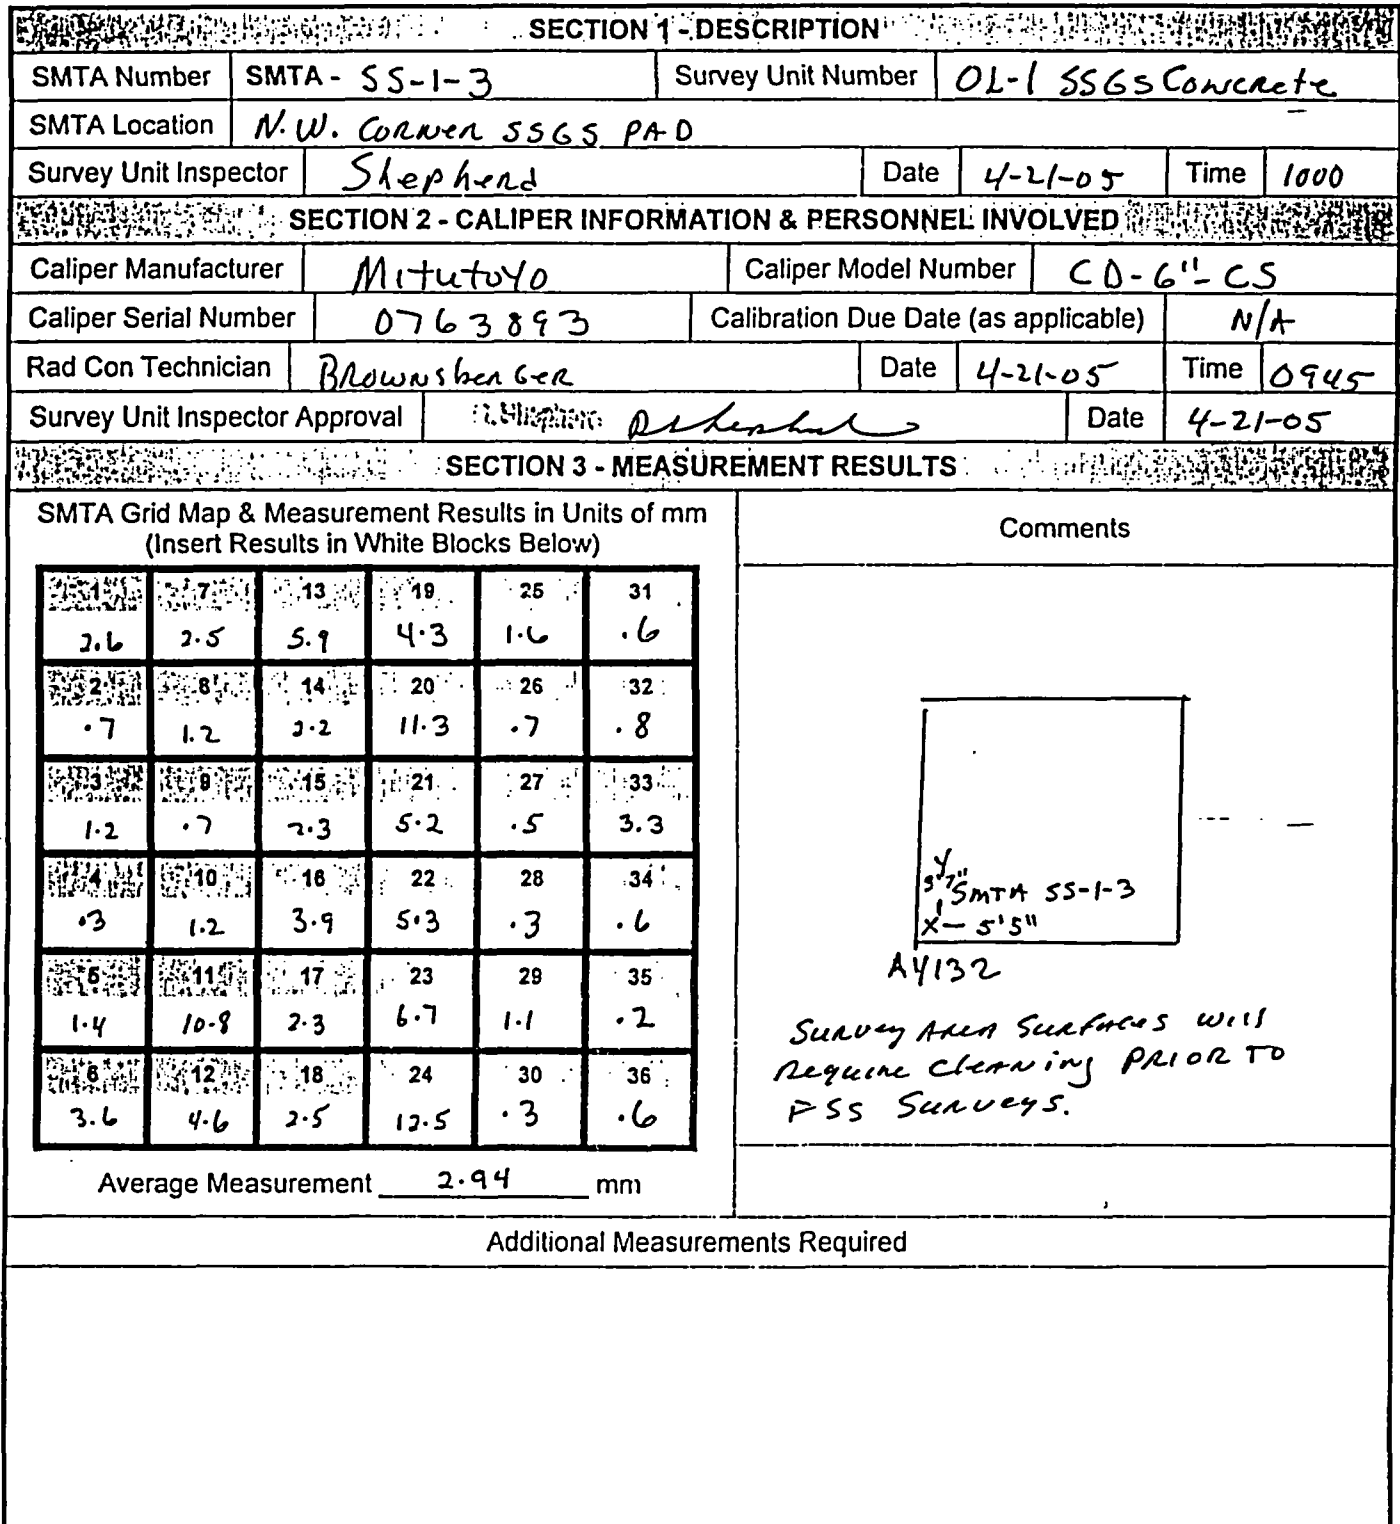 SECTION 1 - DESCRIPTION
SMTA Number SMTA - SS-1-3 Survey Unit Number OL-1 SSGS Concrete
SMTA Location N.W. Corner SSGS PAD
Survey Unit Inspector Shepherd Date 4-21-05 Time 1000
SECTION 2 - CALIPER INFORMATION & PERSONNEL INVOLVED
Caliper Manufacturer Mitutoyo Caliper Model Number CD-6"-CS
Caliper Serial Number 0763893 Calibration Due Date (as applicable) N/A
Rad Con Technician Brownsberger Date 4-21-05 Time 0945
Survey Unit Inspector Approval Date 4-21-05
SECTION 3 - MEASUREMENT RESULTS
SMTA Grid Map & Measurement Results in Units of mm
(Insert Results in White Blocks Below)
Comments
1 7 13 19 25 31
2.6 2.5 5.9 4.3 1.6 .6
2 8 14 20 26 32
.7 1.2 2.2 11.3 .7 .8
3 9 15 21 27 33
1.2 .7 2.3 5.2 .5 3.3
4 10 16 22 28 34
.3 1.2 3.9 5.3 .3 .6
5 11 17 23 29 35
1.4 10.8 2.3 6.7 1.1 .2
6 12 18 24 30 36
3.6 4.6 2.5 12.5 .3 .6
Average Measurement 2.94 mm
Y
SMTA SS-1-3
X - 5'5"
AY132
Survey Area Surfaces will
Require Cleaning PRIOR TO
FSS Surveys.
Additional Measurements Required